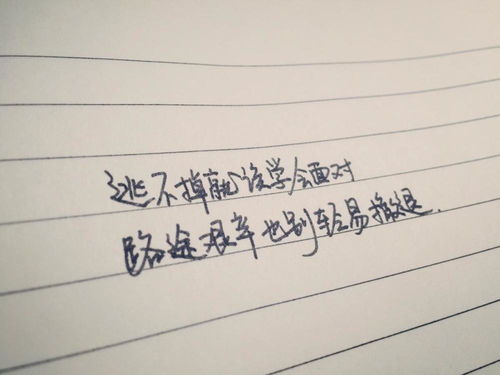 逃不掉就该学会面对
路途艰辛也别轻易撤退.